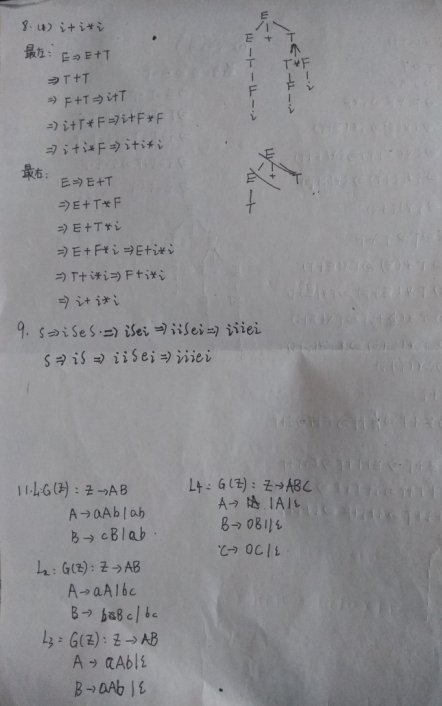 8.(4) i+i*i
最左: E⇒E+T
⇒T+T
⇒F+T⇒i+T
⇒i+T*F⇒i+F*F
⇒i+i*F⇒i+i*i
E
E + T
T T*F
F F i
i i
最右:
E⇒E+T
⇒E+T*F
⇒E+T*i
⇒E+F*i⇒E+i*i
⇒T+i*i⇒F+i*i
⇒i+i*i
9. S⇒iSeS⇒iSei⇒iiSei⇒iiiei
S⇒iS⇒iiSei⇒iiiei
11.L₁G(Z): Z→AB
A→aAb|ab
B→cB|ab
L₂: G(Z): Z→AB
A→aA|bc
B→bBc|bc
L₃= G(Z): Z→AB
A→aAb|ε
B→aAb|ε
L4= G(Z): Z→ABC
A→1A|ε
B→0B1|ε
C→0C|ε